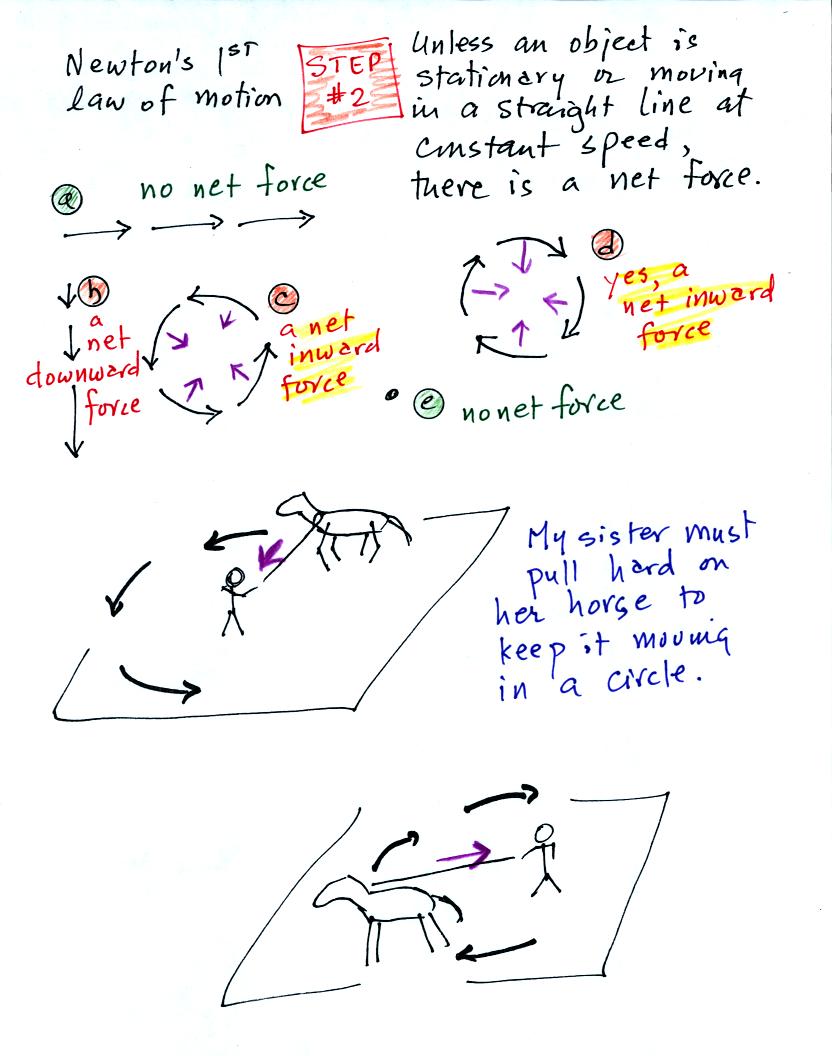 Newton's 1ST
law of motion
STEP
#2
Unless an object is
stationary or moving
in a straight line at
constant speed,
there is a net force.
a
no net force
b
a
net
downward
force
c
a net
inward
force
d
yes, a
net inward
force
e
no net force
My sister must
pull hard on
her horse to
keep it moving
in a circle.